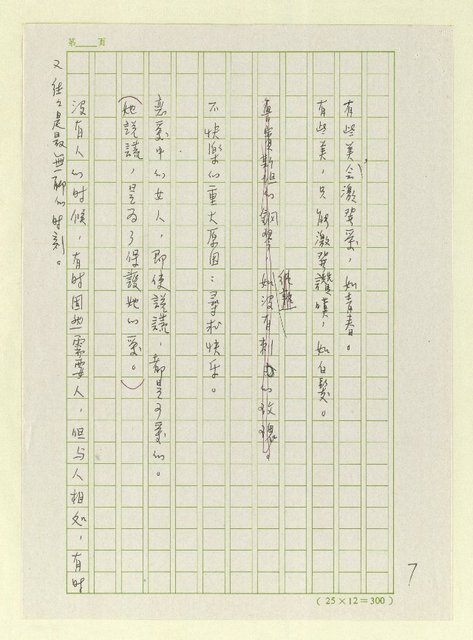 第 頁
有些美，會激發愛，如青春。
有些美，只能激發讚嘆，如白髮。
魯賓斯坦的鋼琴，如沒有刺的玫瑰。
不快樂的重大原因：尋找快樂。
戀愛中的女人，即使說謊，都是可愛的。
（她說謊，是為了保護她的愛。）
沒有人的時候，有時固然需要人，但与人相処，有時
又往往是最無聊的時刻。
7
( 25×12=300 )